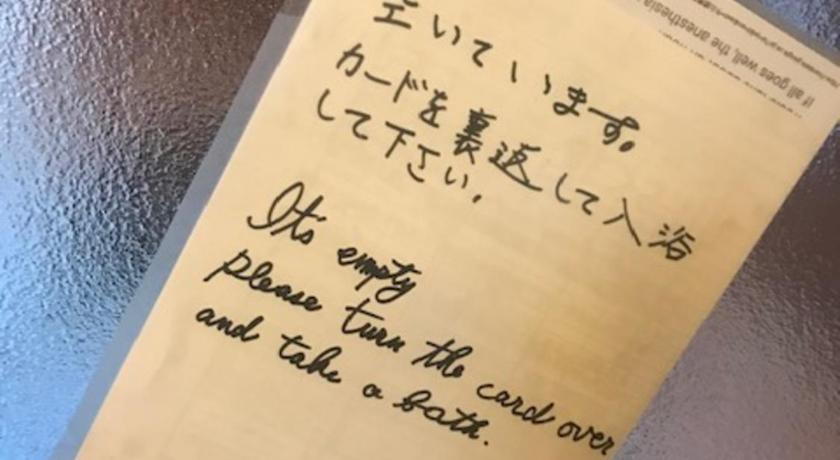 空いています。
カードを裏返して入浴
して下さい。
It's empty
please turn the card over
and take a bath.
If all goes well, the anesthesia